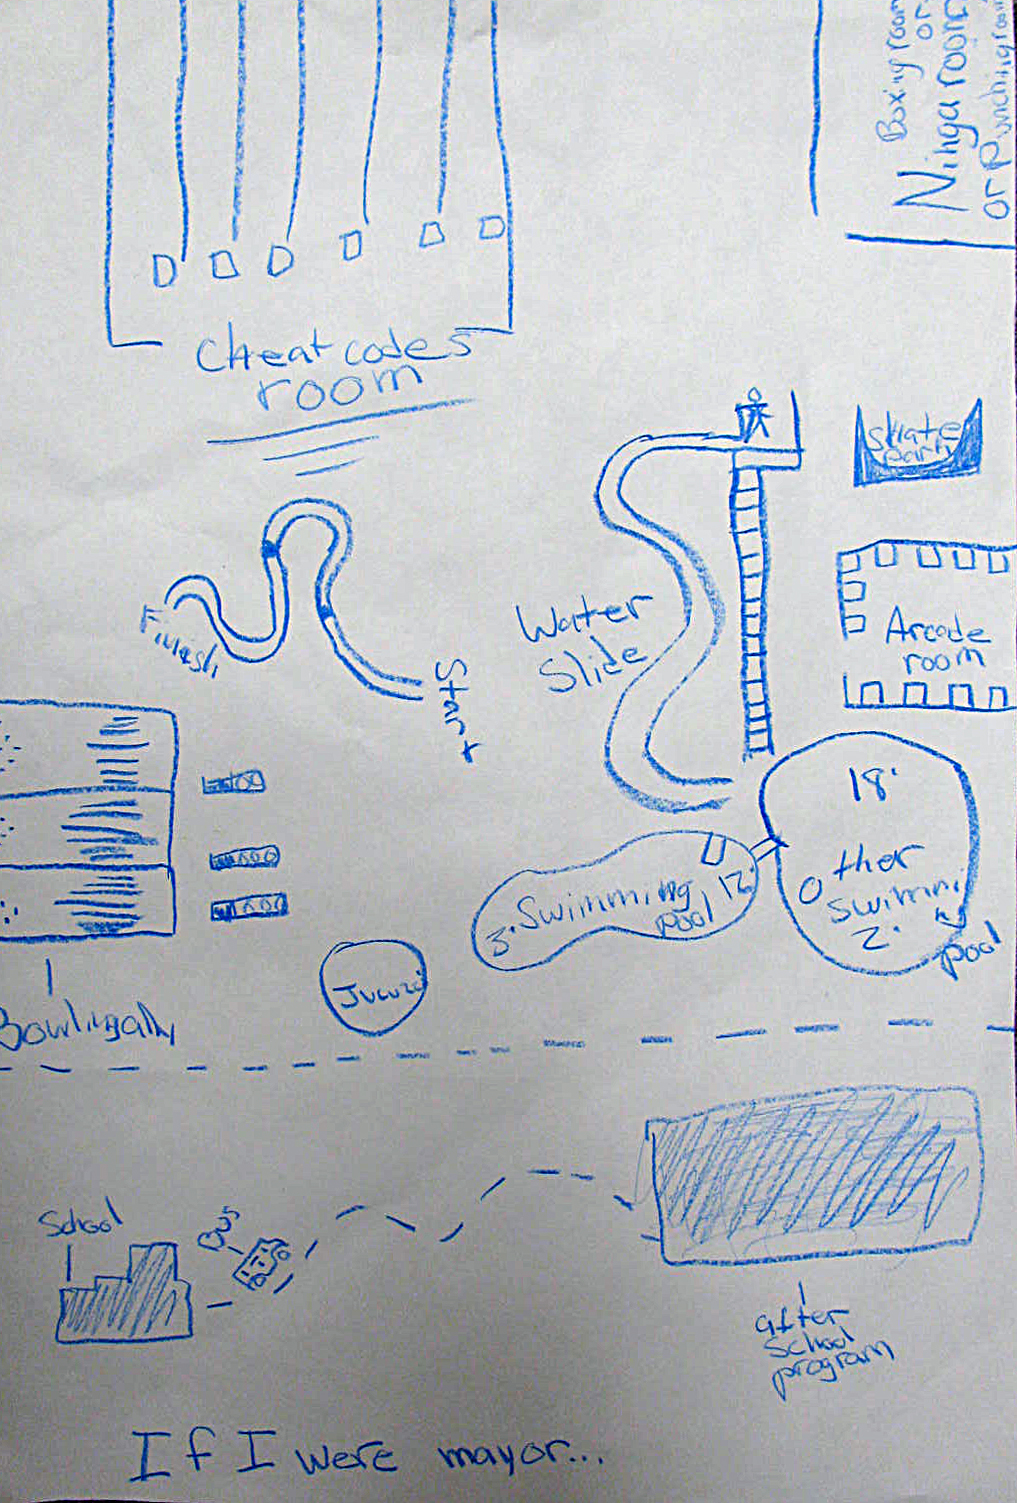 Boxing room
or
Ninga room
or Punching room
Cheat codes
room
Skate
park
Finish
Start
Water
Slide
Arcade
room
18'
Other
Swimming
2'
pool
Swimming
pool
12'
3'
Bowlingally
School
Bus
after
school
program
If I were mayor...